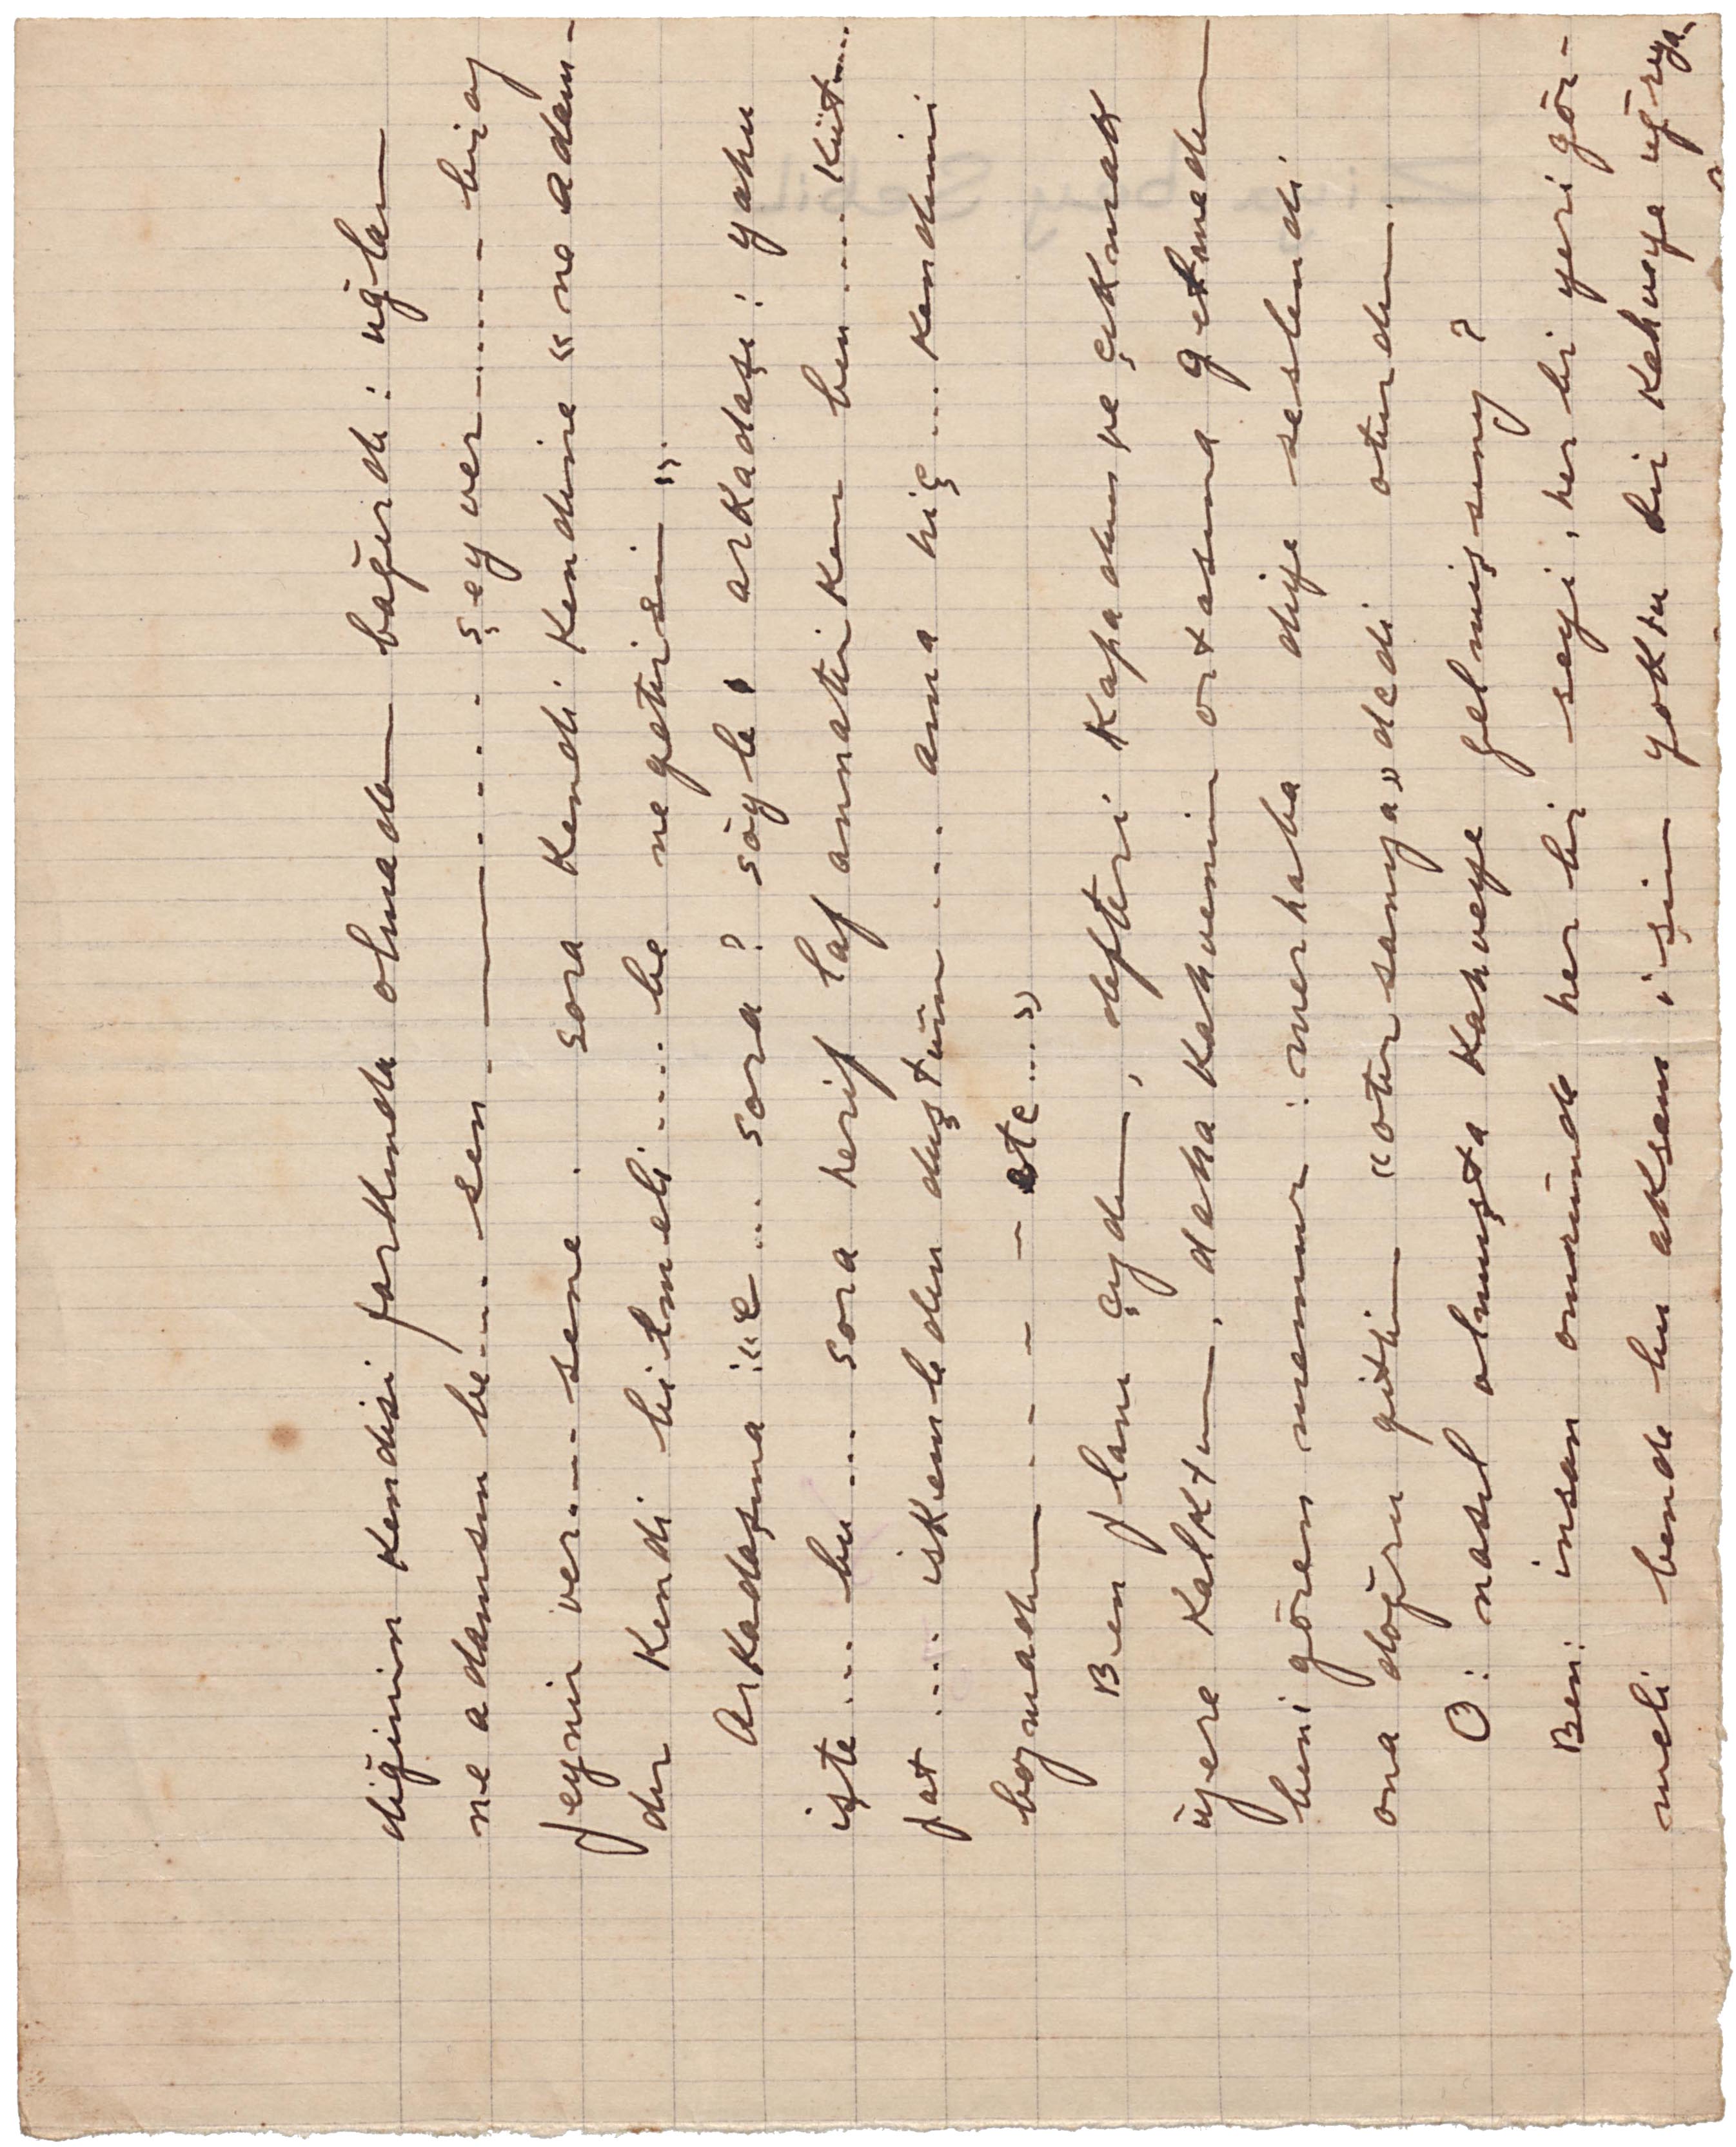 diğinin kendisi farkında olmadan bağırdı: uğlan
ne adamsın be... sen. — ..... şey ver.... bi ay
feynir ver.... sene. sora kendi kendine "ne adam-
dır kendi bilmeli... be ne getirsin"
Arkadaşına: "e... sora? söyle, arkadaşı: yahu
işte... bu... sora herif laf annatirken ben... küt...
pat.... iskemleden duştüm... ama hiç... kendimi
bozmadım — — — ete...."
Ben planı çizdim, defteri kapadım ve çıkmak
üzere kalktım, daha kahvenin ortasına getmeden
beni gören memur: merhaba diye seslendi
ona doğru gittim "otursanıza" dedi oturdum.
O: nasıl olmuşta kahveye gelmişsiniz?
Ben: insan omründe her bi seyi, her bi yeri gör-
meli bende bu akşam işim yoktu bi kahveye uğreya
Ziya bey Sebil